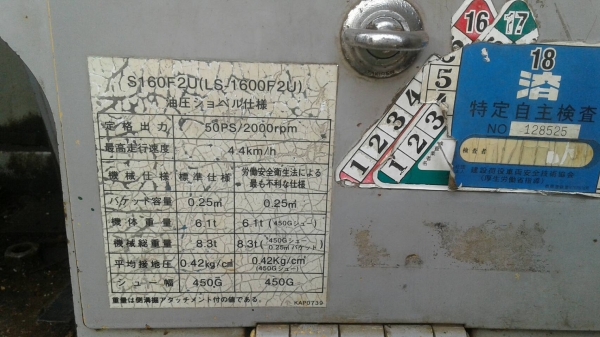 S160F2U(LS-1600F2U)
油圧ショベル仕様
定格出力 50PS/2000rpm
最高走行速度 4.4km/h
機械仕様 標準仕様 労働安全衛生法による最も不利な仕様
バケット容量 0.25㎥ 0.25㎥
機体重量 6.1t 6.1t(450Gシュー)
機械総重量 8.3t 8.3t(450Gシュー 0.25㎥バケット)
平均接地圧 0.42kg/c㎡ 0.42Kg/c㎡(450Gシュー)
シュー幅 450G 450G
KAP0739
16
17
5
1 2 3 4
1 2 3
18
溶
特定自主検査
NO 128525
検査者